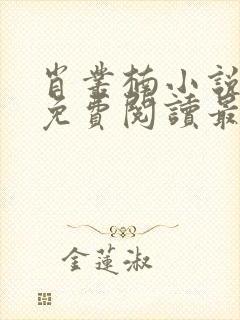 肖業楠小說
免費閱讀最
金蓮淑